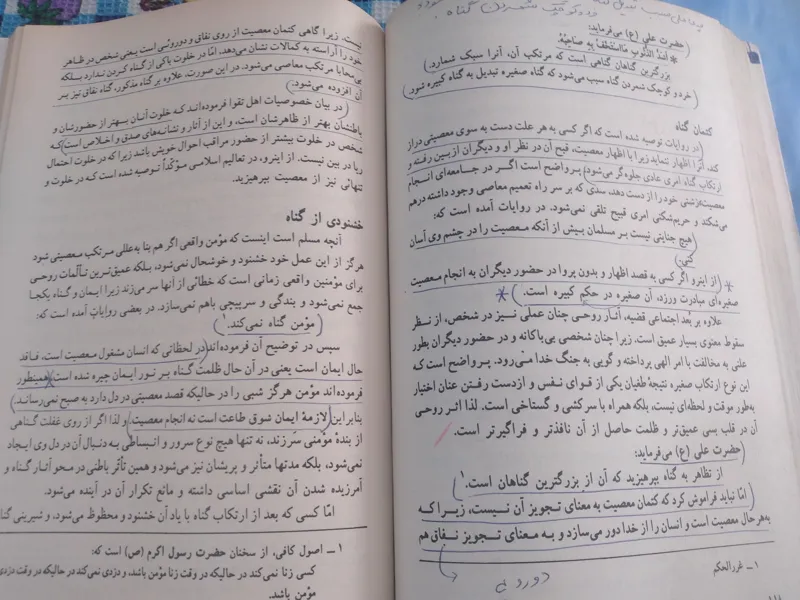 حضرت علی (ع) می‌فرماید:
* اشد الذنوب مااستخف به صاحبه
بزرگترین گناهان گناهی است که مرتکب آن، آنرا سبک شمارد.
خرد و کوچک شمردن گناه سبب می‌شود که گناه صغیره تبدیل به گناه کبیره شود.
کتمان گناه
در روایات توصیه شده است که اگر کسی به هر علت دست به سوی معصیتی دراز
کند، آنرا اظهار ننماید زیرا با اظهار معصیت، قبح آن در نظر او و دیگران از بین رفته و
ارتکاب گناه امری عادی جلوه‌گر می‌شود) پر واضح است اگر در جامعه‌ای انجام
معصیت زشتی خود را از دست دهد، سدی که بر سر راه تعمیم معاصی وجود داشته درهم
می‌شکند و حریم‌شکنی امری قبیح تلقی نمی‌شود. در روایات آمده است که:
(هیچ جنایتی نیست بر مسلمان بیش از آنکه معصیت را در چشم وی آسان
کنی.
* (از اینرو اگر کسی به قصد اظهار و بدون پروا در حضور دیگران به انجام معصیت
صغیره‌ای مبادرت ورزد، آن صغیره در حکم کبیره است.) *
علاوه بر بُعد اجتماعی قضیه، آثار روحی چنان عملی نیز در شخص، از نظر
سقوط معنوی بسیار عمیق است. زیرا چنان شخصی بی‌باکانه و در حضور دیگران بطور
علنی به مخالفت با امر الهی پرداخته و گویی به جنگ خدا می‌رود. پر واضح است که
این نوع ارتکاب صغیره نتیجهٔ طغیان یکی از قوای نفس و ازدست رفتن عنان اختیار
به‌طور موقت و لحظه‌ای نیست، بلکه همراه با سرکشی و گستاخی است. لذا اثر روحی
آن در قلب بسی عمیق‌تر و ظلمت حاصل از آن نافذتر و فراگیرتر است.
(حضرت علی (ع) می‌فرماید:
از تظاهر به گناه بپرهیزید که آن از بزرگترین گناهان است.۱
(امّا نباید فراموش کرد که کتمان معصیت به معنای تجویز آن نیست، زیرا که
به‌هر حال معصیت است و انسان را از خدا دور می‌سازد و به معنای تجویز نفاق هم
۱ـ غررالحکم
نیست. زیرا گاهی کتمان معصیت از روی نفاق و دوروئی است یعنی شخص در ظاهر
خود را آراسته به کمالات نشان می‌دهد، امّا در خلوت باکی از گناه کردن ندارد بلکه
بی‌محابا مرتکب معاصی می‌شود. در این صورت، علاوه بر گناه مذکور، گناه نفاق نیز بر
آن افزوده می‌شود.)
(در بیان خصوصیات اهل تقوا فرموده‌اند که خلوت آنان بهتر از حضورشان و
باطنشان بهتر از ظاهرشان است، و این از آثار و نشانه‌های صدق و اخلاص است) که
شخص در خلوت بیشتر از حضور مراقب احوال خویش باشد زیرا که در خلوت احتمال
ریا در بین نیست. از اینرو، در تعالیم اسلامی مؤکّداً توصیه شده است که در خلوت و
تنهائی نیز از معصیت بپرهیزید.
خشنودی از گناه
آنچه مسلم است اینست که مؤمن واقعی اگر هم بنا به‌عللی مرتکب معصیتی شود
هرگز از این عمل خود خشنود و خوشحال نمی‌شود، بلکه عمیق‌ترین تألمات روحی
برای مؤمنین واقعی زمانی است که خطائی از آنها سر می‌زند زیرا ایمان و گناه یکجا
جمع نمی‌شود و بندگی و سرپیچی باهم نمی‌سازد. در بعضی روایات آمده است که:
(مؤمن گناه نمی‌کند.۱
سپس در توضیح آن فرموده‌اند (در لحظاتی که انسان مشغول معصیت است، فاقد
حال ایمان است یعنی در آن حال ظلمت گناه بر نور ایمان چیره شده است) همینطور
فرموده‌اند مؤمن هرگز شبی را در حالیکه قصد معصیتی در دل دارد به صبح نمی‌رساند.)
بنابراین (لازمهٔ ایمان شوق طاعت است نه انجام معصیت، و لذا اگر از روی غفلت گناهی
از بندهٔ مؤمنی سَرزند، نه تنها هیچ نوع سرور و انبساطی به دنبال آن در دل وی ایجاد
نمی‌شود، بلکه مدتها متأثر و پریشان نیز می‌شود و همین تأثر باطنی در محو آثار گناه و
آمرزیده شدن آن نقشی اساسی داشته و مانع تکرار آن در آینده می‌شود.
امّا کسی که بعد از ارتکاب گناه با یاد آن خشنود و محظوظ می‌شود، و شیرینی
۱ـ اصول کافی، از سخنان حضرت رسول اکرم (ص) است که:
کسی زنا نمی‌کند در حالیکه در وقت زنا مؤمن باشد، و دزدی نمی‌کند در حالیکه در وقت دزدی
مؤمن باشد.